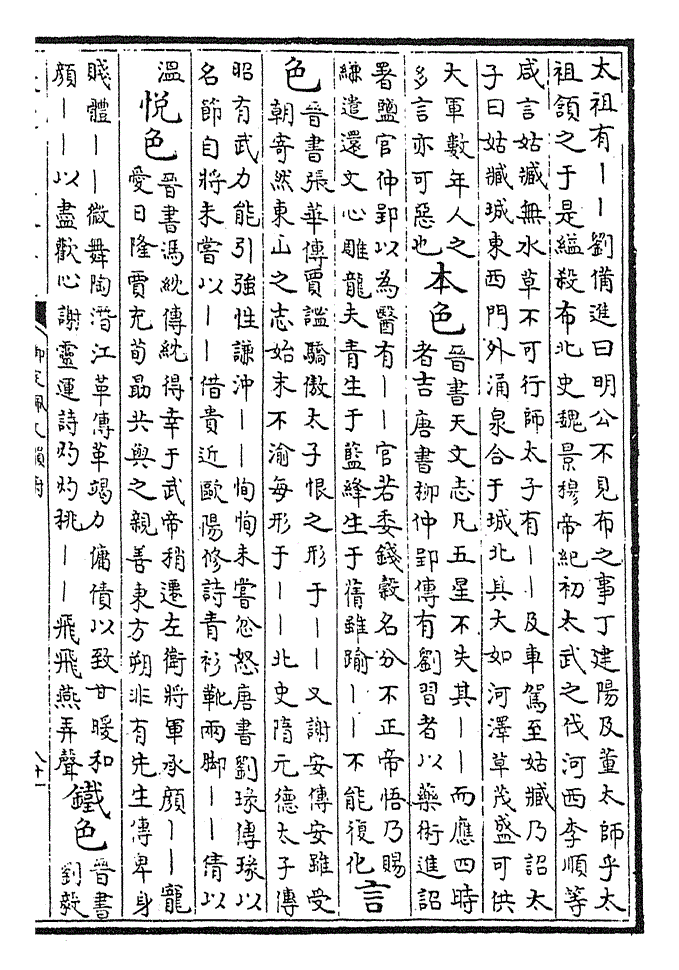 太祖有丨丨劉備進曰明公不見布之事丁建陽及董太師乎太
祖頷之于是縊殺布北史魏景穆帝紀初太武之伐河西李順等
咸言姑臧無水草不可行師太子有丨丨及車駕至姑臧乃詔太
子曰姑臧城東西門外涌泉合于城北其大如河澤草茂盛可供
大軍數年人之
多言亦可惡也
本色
晉書天文志凡五星不失其丨丨而應四時
者吉唐書柳仲郢傳有劉習者以藥術進詔
署鹽官仲郢以為醫有丨丨官若委錢穀名分不正帝悟乃賜
縑遣還文心雕龍夫青生于藍絳生于蒨雖踰丨丨不能復化
言
色
晉書張華傳賈謐驕傲太子恨之形于丨丨又謝安傳安雖受
朝寄然東山之志始末不渝每形于丨丨北史隋元德太子傳
昭有武力能引強性謙沖丨丨恂恂未嘗忿怒唐書劉瑑傳瑑以
名節自將未嘗以丨丨借貴近歐陽修詩青衫靴兩脚丨丨倩以
溫
悅色
晉書馮紞傳紞得幸于武帝稍遷左衛將軍承顏丨丨寵
愛日隆賈充荀勗共與之親善東方朔非有先生傳卑身
賤體丨丨微舞陶潛江革傳革竭力傭債以致甘暖和
顏丨丨以盡歡心謝靈運詩灼灼桃丨丨飛飛燕弄聲
鐵色
晉書
劉毅